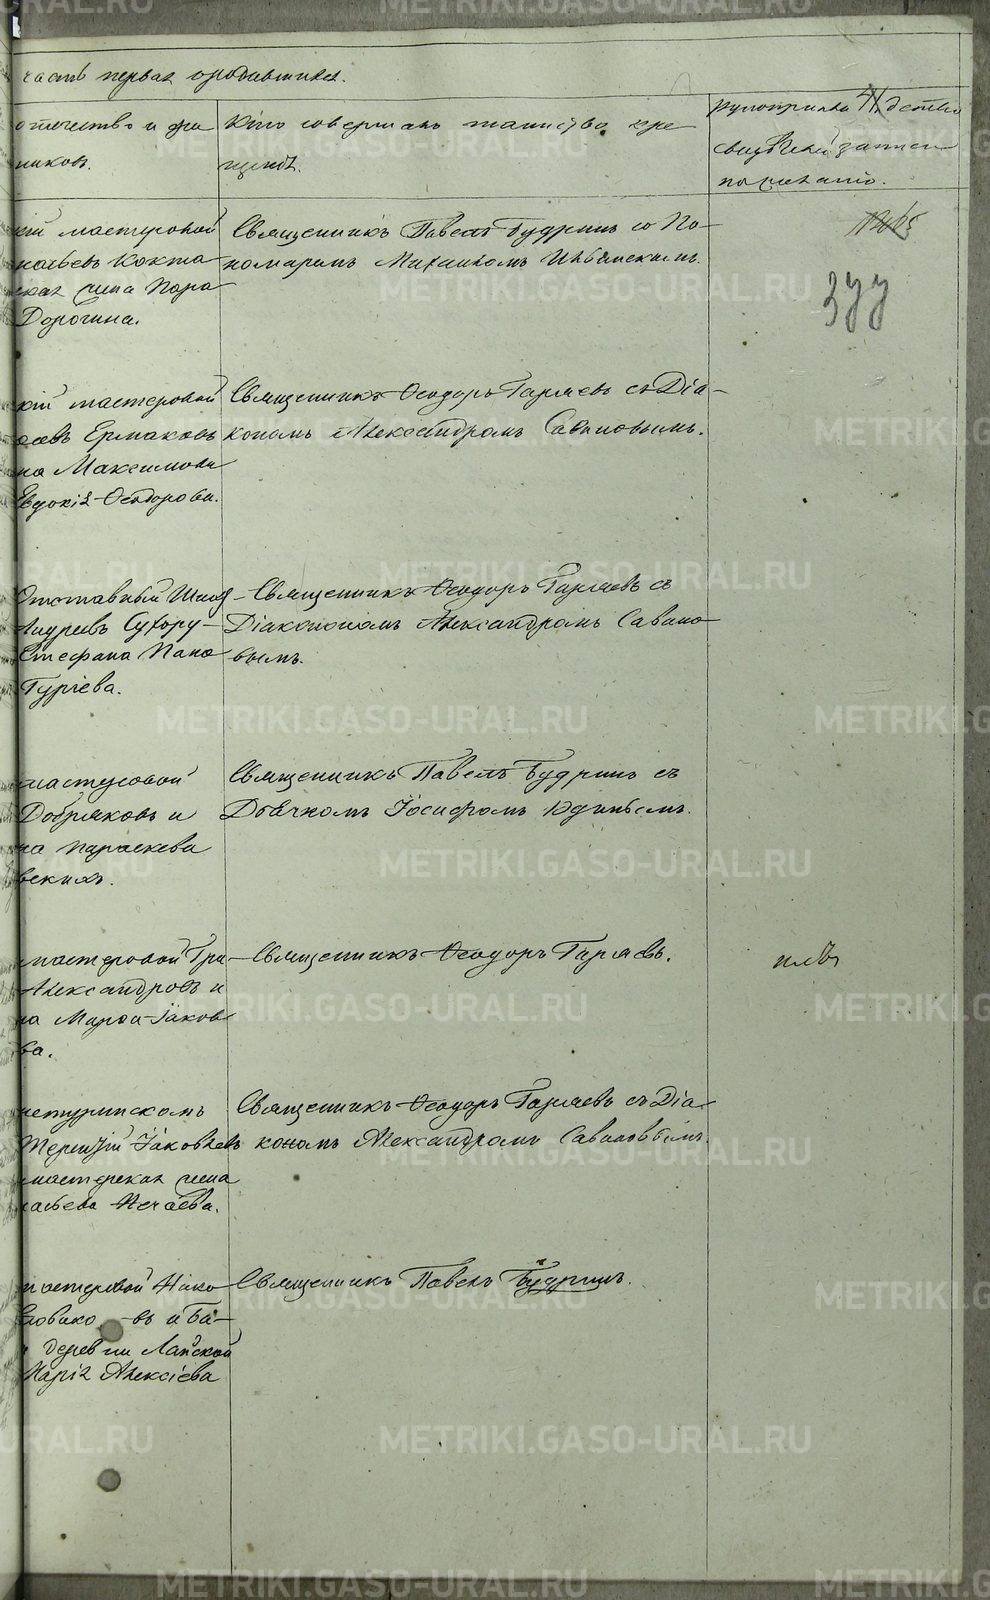 часть первая о родившихся.
отчество и фа
миліи
никовъ.
Кто совершалъ таинство кре
щенія.
Рукоприкладство
свидѣтелей записи
по желанію.
377
кій мастеровой
Дорогина.
Священникъ Павелъ Будринъ со По-
номаремъ Михаиломъ
кій мастеровой
Ермаковъ
на Максимова
Евдокія Ѳеодорова.
Священникъ Ѳеодоръ Гаряевъ съ Діа-
кономъ Александромъ Савиновымъ.
Отставный
Андреевъ Сухору-
Стефана Пано
Гуріева.
Священникъ Ѳеодоръ Гаряевъ съ
Діакономъ Александромъ Савино-
вымъ.
мастеровой
Добряковъ и
на Параскева
вскихъ.
Священникъ Павелъ Будринъ съ
Дьячкомъ Іосифомъ Юдинымъ.
мастеровой Гри
Александровъ и
на Марѳа Іаков
ва.
Священникъ Ѳеодоръ Гаряевъ.
нетуринскомъ
Терентій Іаковлевъ
мастерская жена
Нечаева.
Священникъ Ѳеодоръ Гаряевъ съ Діа
кономъ Александромъ Савиновымъ.
мастеровой Нико
деревни Лайской
Марія Алексіева
Священникъ Павелъ Будринъ.
METRIKI.GASO-URAL.RU